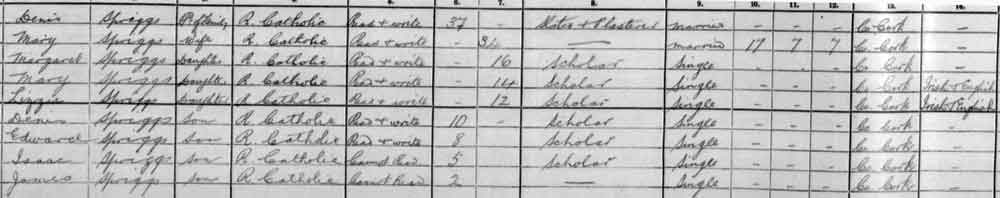 6. 7. 8. 9. 10. 11. 12. 13. 14.
Denis Spriggs R. Catholic Read + write 37 - Slater + Plasterer married - - - Co. Cork -
Mary Spriggs Wife R. Catholic Read + write - — married 17 7 7 Co. Cork -
Margaret Spriggs Daughter R. Catholic Read + write - 16 Scholar Single - - - Co. Cork -
Mary Spriggs Daughter R. Catholic Read + write - 14 Scholar Single - - - Co. Cork Irish + English
Lizzie Spriggs Daughter R. Catholic Read + write - 12 Scholar Single - - - Co. Cork Irish + English
Denis Spriggs Son R. Catholic Read + write 10 - Scholar Single - - - Co. Cork -
Edward Spriggs Son R. Catholic Read + write 8 Scholar Single - - - Co. Cork -
Isaac Spriggs Son R. Catholic Cannot Read 5 Scholar Single - - - Co. Cork -
James Sprigg Son R. Catholic Cannot Read 2 — Single - - - Co. Cork -